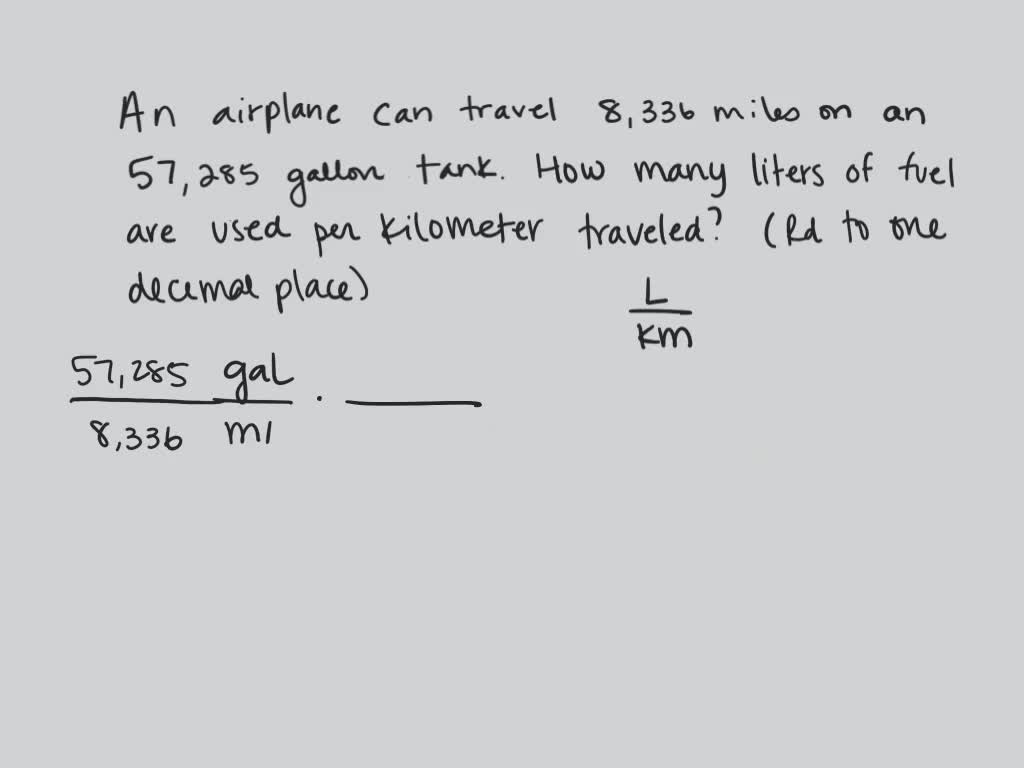 An airplane can travel 8,336 miles on an
57,285 gallon tank. How many liters of fuel
are used per kilometer traveled? (Rd to one
decimal place)
L
km
57,285 gal
8,336 mi
·